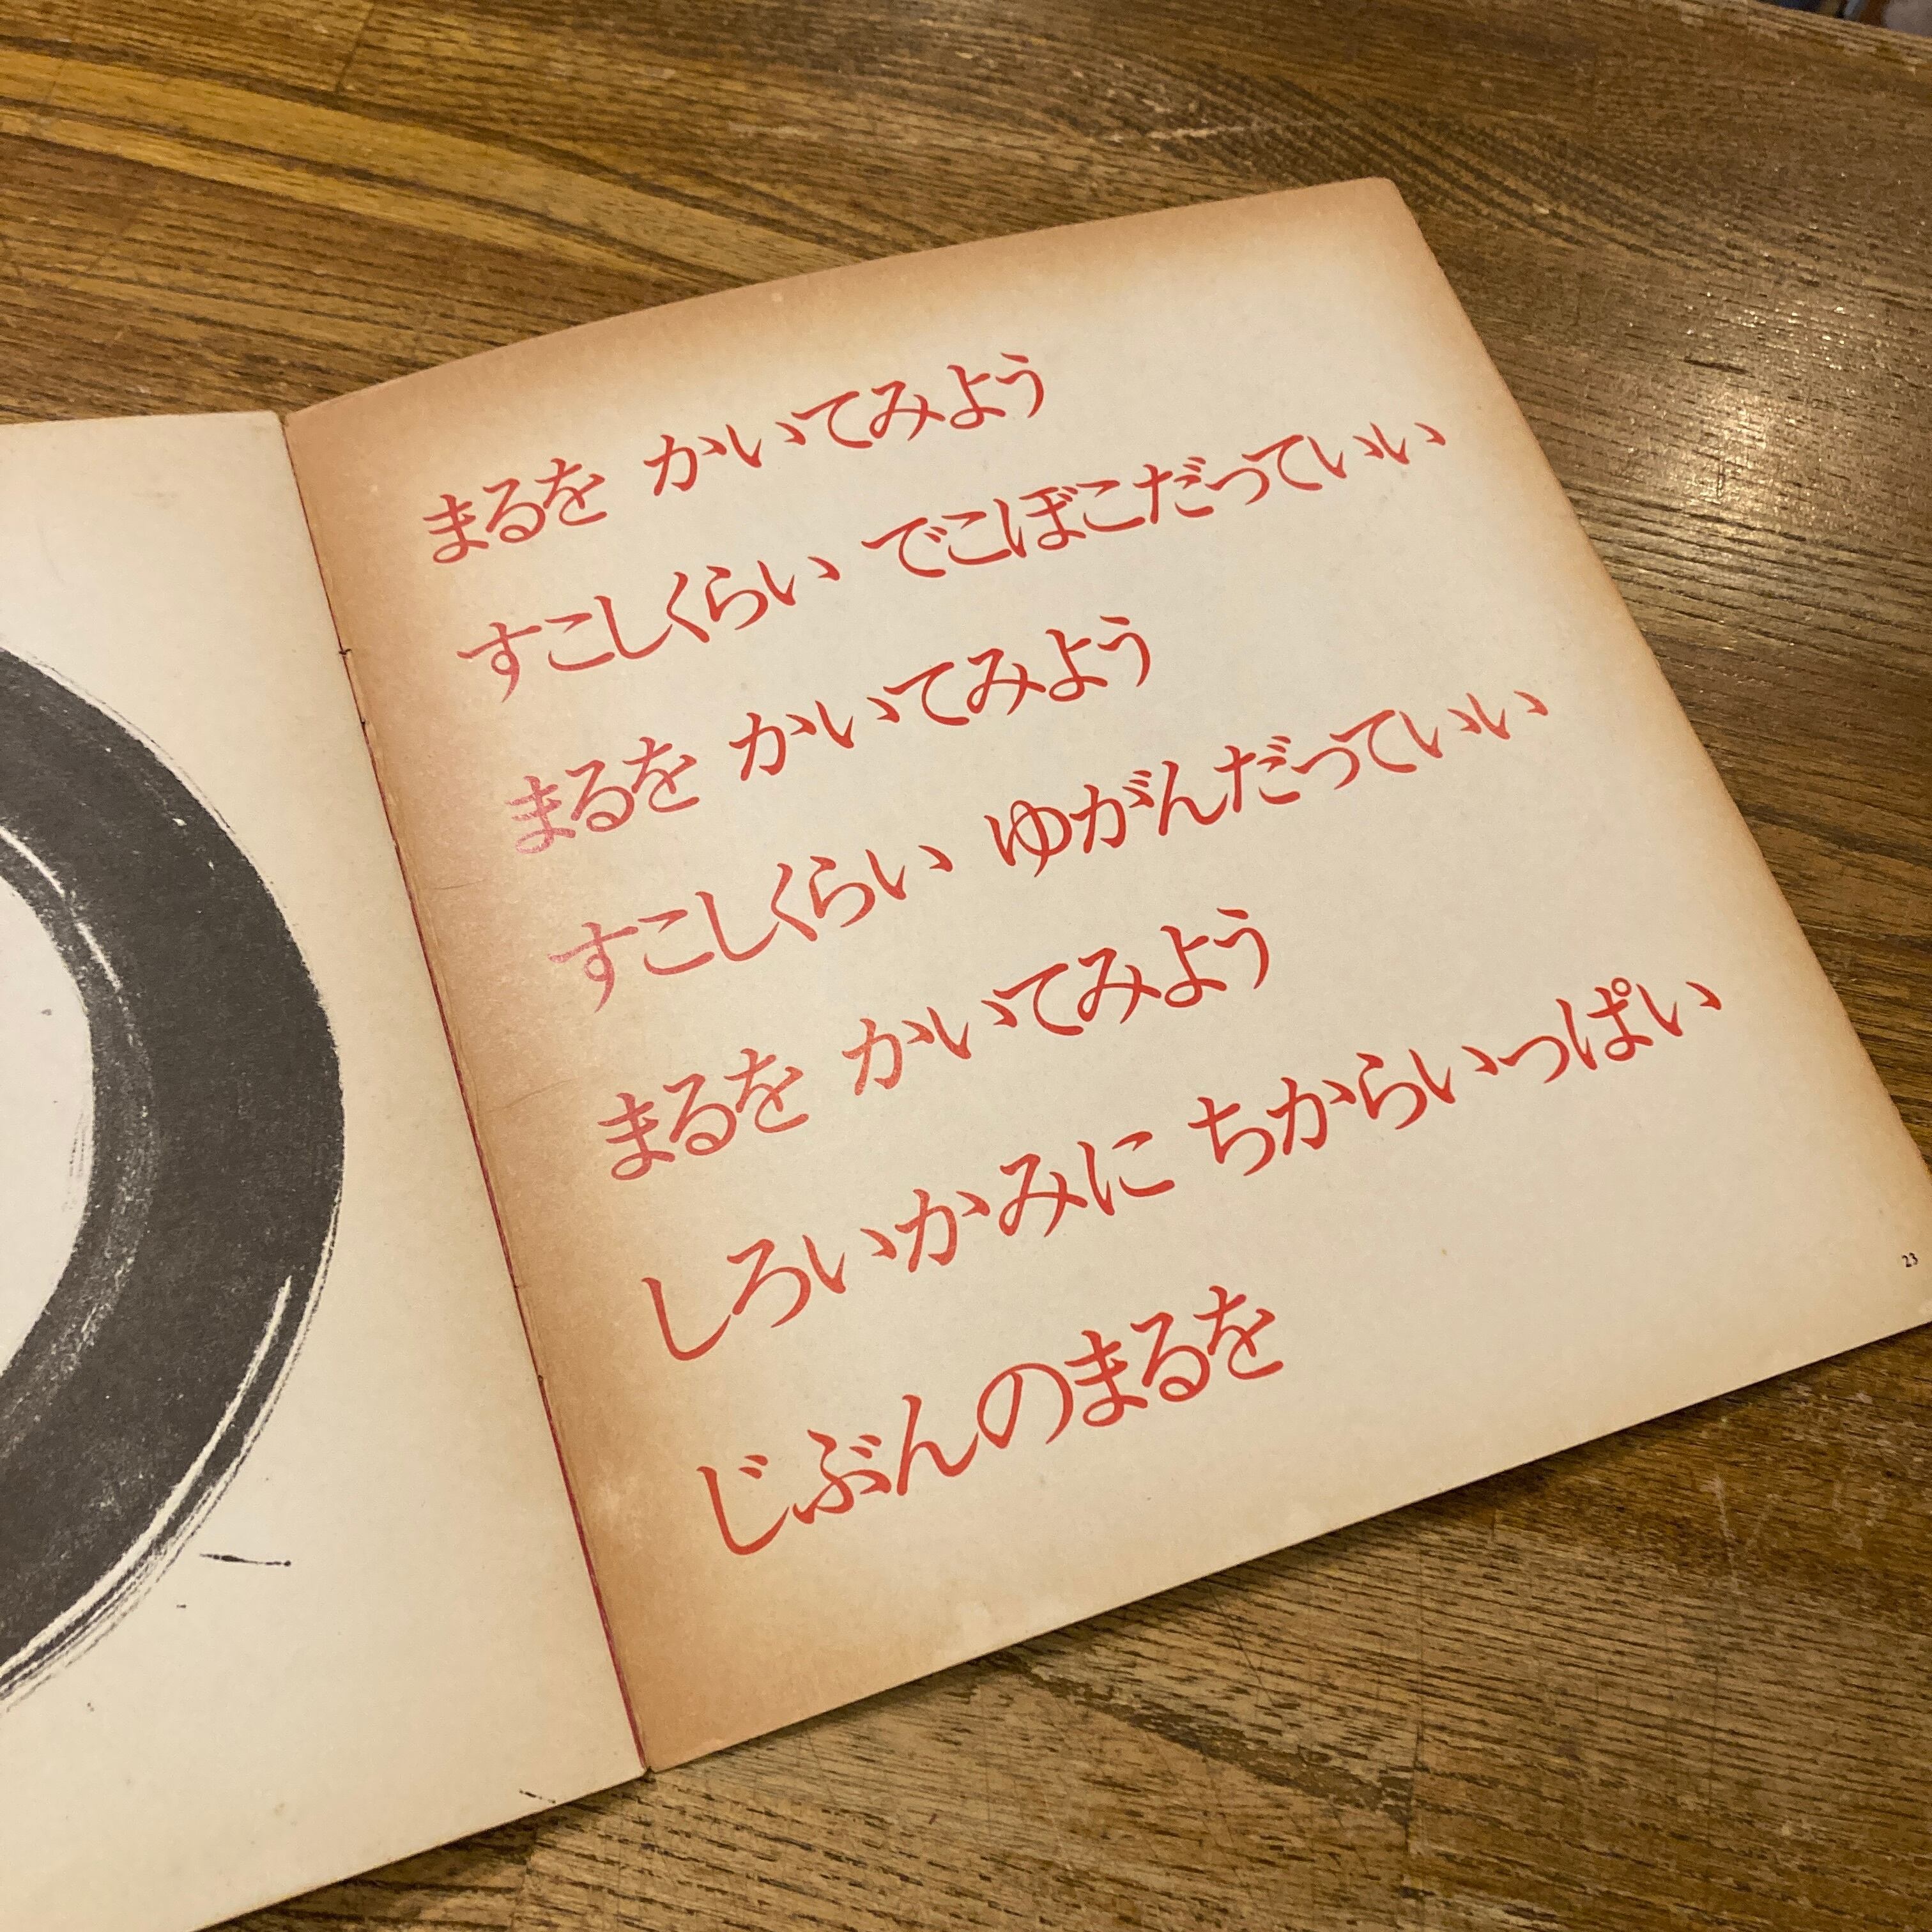 まるを かいてみよう
すこしくらい でこぼこだっていい
まるを かいてみよう
すこしくらい ゆがんだっていい
まるを かいてみよう
しろいかみに ちからいっぱい
じぶんのまるを
23